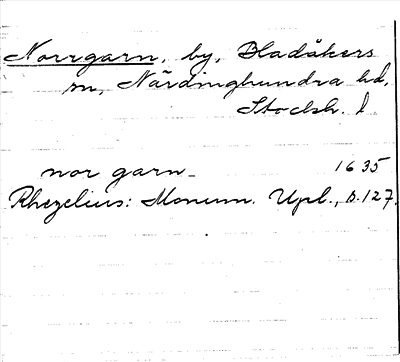 Norrgarn, by, Bladåkers
sn, Närdinghundra hd,
Stockh. l.
nor garn 1635
Rhezelius: Monum. Upl., s. 127.